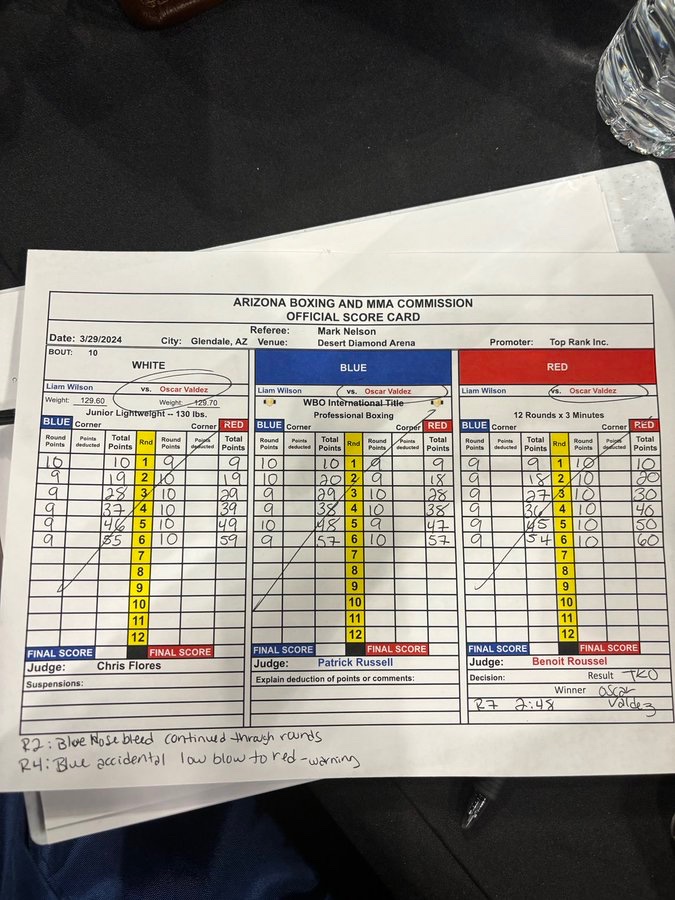 ARIZONA BOXING AND MMA COMMISSION
OFFICIAL SCORE CARD
Referee: Mark Nelson
Date: 3/29/2024 City: Glendale, AZ Venue: Desert Diamond Arena Promoter: Top Rank Inc.
BOUT: 10
WHITE BLUE RED
Liam Wilson vs. Oscar Valdez Liam Wilson vs. Oscar Valdez Liam Wilson vs. Oscar Valdez
Weight: 129.60 Weight: 129.70 WBO International Title
Junior Lightweight -- 130 lbs. Professional Boxing 12 Rounds x 3 Minutes
BLUE Corner Corner RED BLUE Corner Corner RED BLUE Corner Corner RED
Round Points Points deducted Total Points Rnd Round Points Points deducted Total Points Round Points Points deducted Total Points Rnd Round Points Points deducted Total Points Round Points Points deducted Total Points Rnd Round Points Points deducted Total Points
10 10 1 9 9 10 10 1 9 9 9 9 1 10 10
9 19 2 10 19 10 20 2 9 18 9 18 2 10 20
9 28 3 10 29 9 29 3 10 28 9 27 3 10 30
9 37 4 10 39 9 38 4 10 38 9 36 4 10 40
9 46 5 10 49 10 48 5 9 47 9 45 5 10 50
9 55 6 10 59 9 57 6 10 57 9 54 6 10 60
7 7 7
8 8 8
9 9 9
10 10 10
11 11 11
12 12 12
FINAL SCORE FINAL SCORE FINAL SCORE FINAL SCORE FINAL SCORE FINAL SCORE
Judge: Chris Flores Judge: Patrick Russell Judge: Benoit Roussel
Suspensions: Explain deduction of points or comments: Decision: Result TKO
Winner Oscar Valdez
R7 2:48
R2: Blue Nosebleed continued through rounds
R4: Blue accidental low blow to red - warning